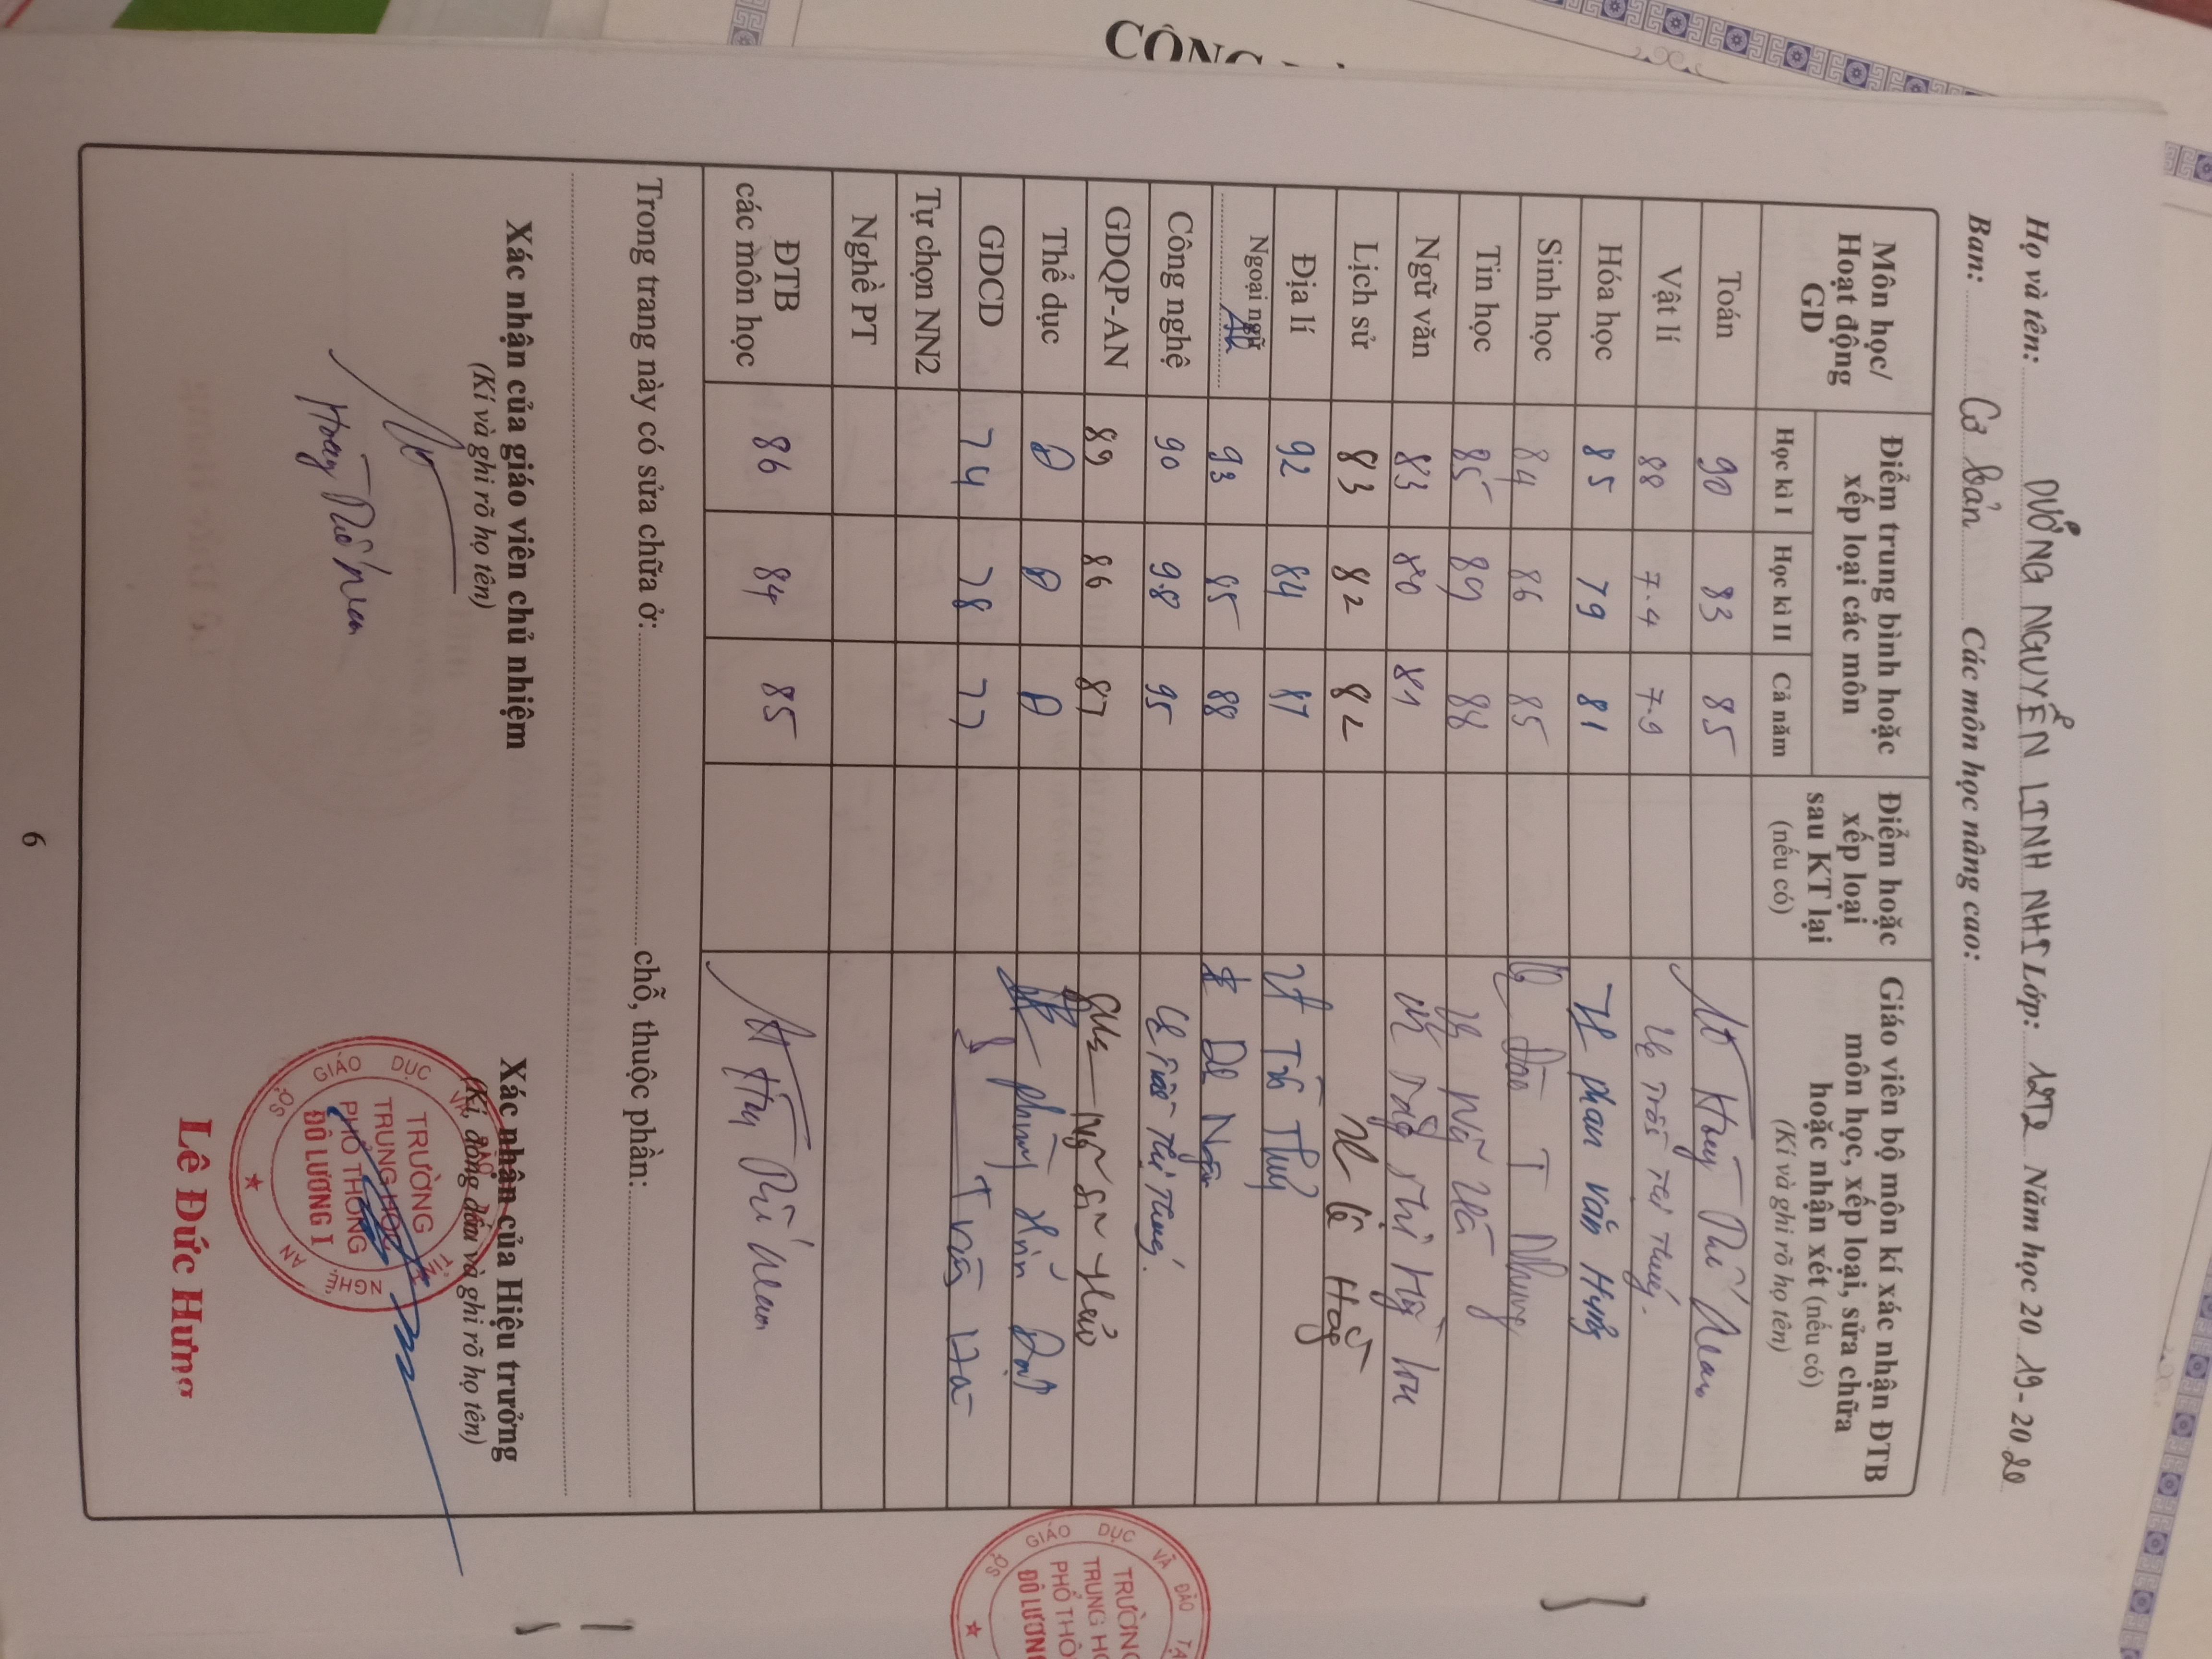 Họ và tên: DƯƠNG NGUYỄN LINH NHI Lớp: 12T2 Năm học 20 19 - 20 20
Ban: Cơ bản Các môn học nâng cao:
Môn học/ Hoạt động GD
Điểm trung bình hoặc xếp loại các môn
Học kì I Học kì II Cả năm
Điểm hoặc xếp loại sau KT lại (nếu có)
Giáo viên bộ môn kí xác nhận ĐTB môn học, xếp loại, sửa chữa hoặc nhận xét (nếu có)
(Kí và ghi rõ họ tên)
Toán 90 83 85
Vật lí 88 7.4 7.9 Trần Thị Thuý
Hóa học 85 79 81 Phan Văn Hưng
Sinh học 84 86 85 Đào T Nhung
Tin học 85 89 88
Ngữ văn 83 80 81
Lịch sử 83 82 82 Lê
Địa lí 92 84 87
Ngoại ngữ 93 85 88
Công nghệ 90 9.8 95 Trần Thị Thuý
GDQP-AN 89 86 87
Thể dục Đ Đ Đ
GDCD 74 78 77
Tự chọn NN2
Nghề PT
ĐTB các môn học 86 84 85
Trong trang này có sửa chữa ở: chỗ, thuộc phần:
Xác nhận của giáo viên chủ nhiệm
(Kí và ghi rõ họ tên)
Xác nhận của Hiệu trưởng
(Kí, đóng dấu và ghi rõ họ tên)
SỞ GIÁO DỤC VÀ ĐÀO TẠO TỈNH NGHỆ AN
TRƯỜNG
TRUNG HỌC
PHỔ THÔNG
ĐÔ LƯƠNG I
Lê Đức Hưng
6
GIÁO DỤC VÀ ĐÀO
TRƯỜNG
TRUNG
PHỔ
ĐÔ